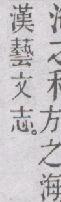 之利方之海
漢藝文志。